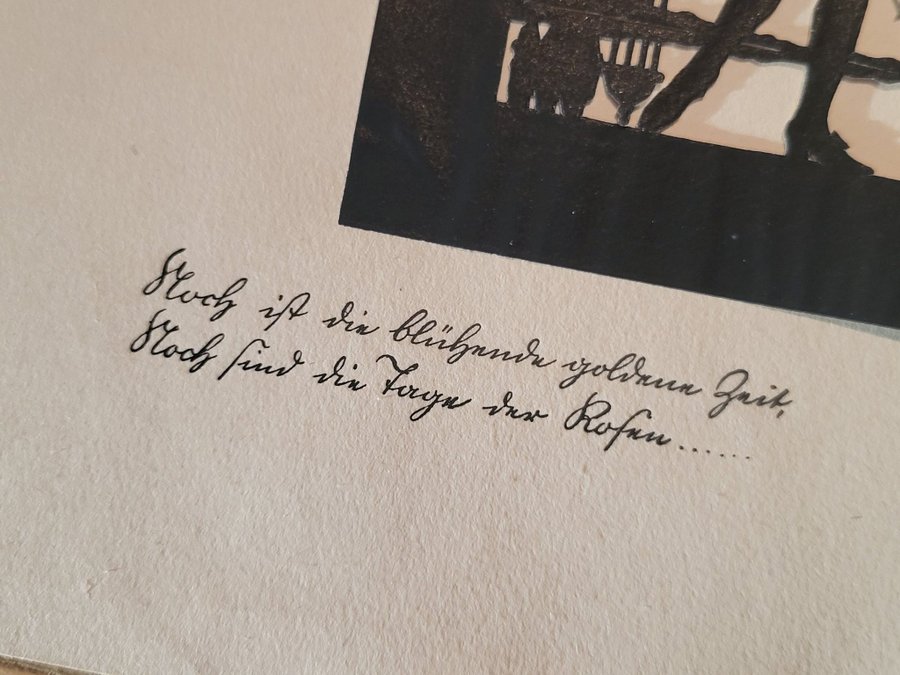 Noch ist die blühende goldene Zeit,
Noch sind die Tage der Rosen......